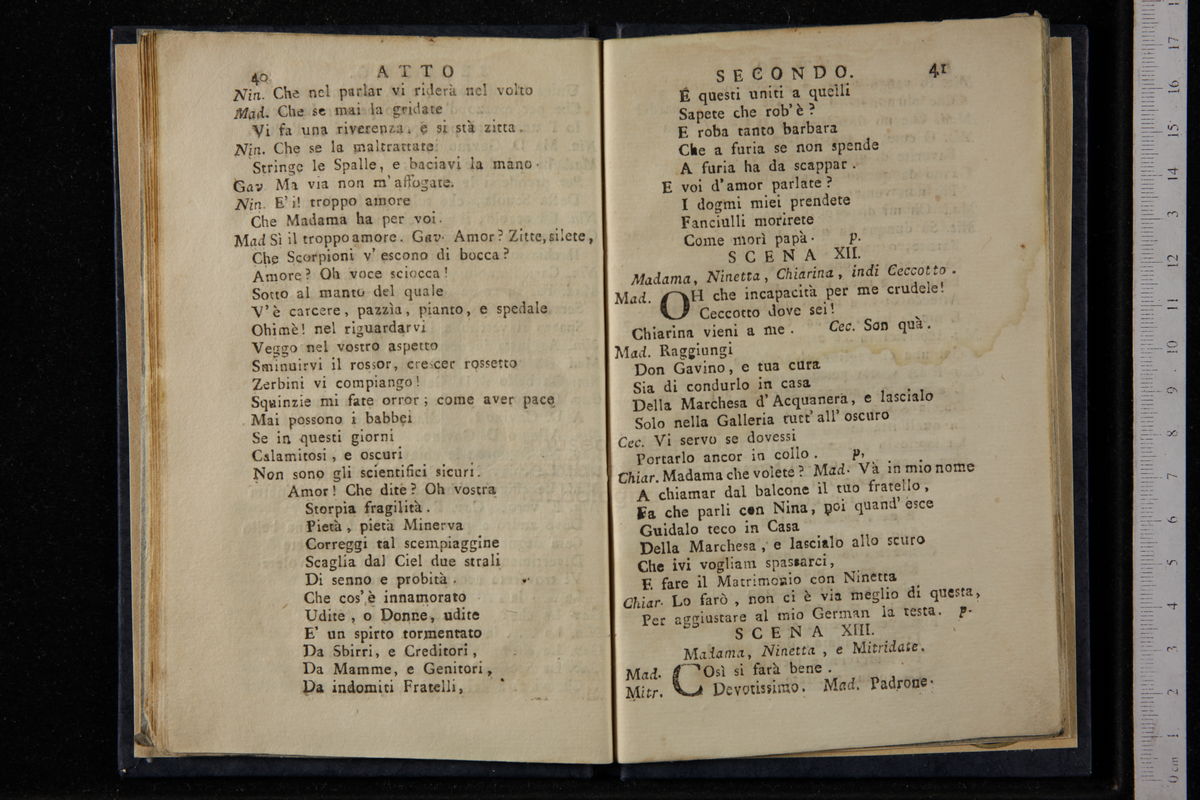 40 ATTO
Nin. Che nel parlar vi riderà nel volto
Mad. Che se mai la gridate
Vi fa una riverenza, e si stà zitta.
Nin. Che se la maltrattate
Stringe le Spalle, e baciavi la mano.
Gav. Ma via non m'affogate.
Nin. E' il troppo amore
Che Madama ha per voi.
Mad Sì il troppo amore. Gav. Amor? Zitte, silete,
Che Scorpioni v'escono di bocca?
Amore? Oh voce sciocca!
Sotto al manto del quale
V'è carcere, pazzìa, pianto, e spedale
Ohimè! nel riguardarvi
Veggo nel vostro aspetto
Sminuirvi il rossor, crescer rossetto
Zerbini vi compiango!
Squinzie mi fate orror; come aver pace
Mai possono i babbei
Se in questi giorni
Calamitosi, e oscuri
Non sono gli scientifici sicuri.
Amor! Che dite? Oh vostra
Storpia fragilità.
Pietà, pietà Minerva
Correggi tal scempiaggine
Scaglia dal Ciel due strali
Di senno e probità.
Che cos'è innamorato
Udite, o Donne, udite
E' un spirto tormentato
Da Sbirri, e Creditori,
Da Mamme, e Genitori,
Da indomiti Fratelli,
SECONDO. 41
E questi uniti a quelli
Sapete che rob'è?
E roba tanto barbara
Che a furia se non spende
A furia ha da scappar.
E voi d'amor parlate?
I dogmi miei prendete
Fanciulli morirete
Come morì papà. p.
SCENA XII.
Madama, Ninetta, Chiarina, indi Ceccotto.
Mad. OH che incapacità per me crudele!
Ceccotto dove sei!
Chiarina vieni a me. Cec. Son quà.
Mad. Raggiungi
Don Gavino, e tua cura
Sia di condurlo in casa
Della Marchesa d'Acquanera, e lascialo
Solo nella Galleria tutt'all'oscuro
Cec. Vi servo se dovessi
Portarlo ancor in collo. p,
Chiar. Madama che volete? Mad. Và in mio nome
A chiamar dal balcone il tuo fratello,
Fa che parli con Nina, poi quand'esce
Guidalo teco in Casa
Della Marchesa, e lascialo allo scuro
Che ivi vogliam spassarci,
E fare il Matrimonio con Ninetta
Chiar. Lo farò, non ci è via meglio di questa,
Per aggiustare al mio German la testa. p.
SCENA XIII.
Madama, Ninetta, e Mitridate.
Mad. COsì si farà bene.
Mitr. Devotissimo. Mad. Padrone.